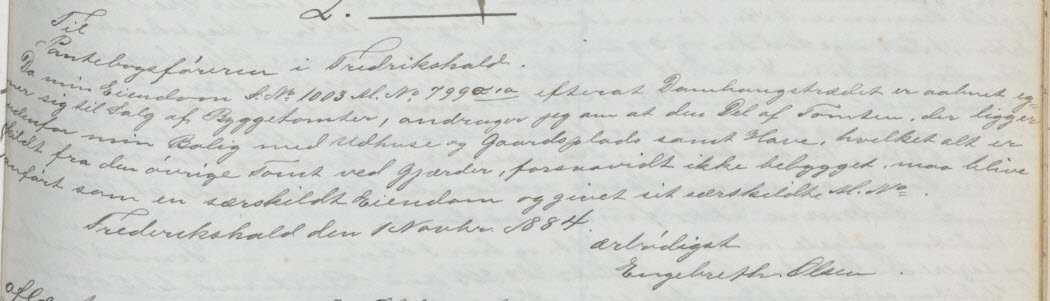 L.
Til
Pantebogsføreren i Fredrikshald.
Da min Eiendom S. No 1003 M. No 799 a efterat Damhaugstrædet er aabnet eg-
ner sig til Salg af Byggetomter, andrager jeg om at den Del af Tomten, der ligger
udenfor min Bolig med Udhuse og Gaardsplads samt Have, hvilket alt er
skildt fra den øvrige Tomt ved Gjærder, forsaavidt ikke bebygget, maa blive
anført som en særskildt Eiendom og givet sit særskildte M. No.
Frederikshald den 1 Novbr. 1884.
ærbødigst
Engebreth Olsen.